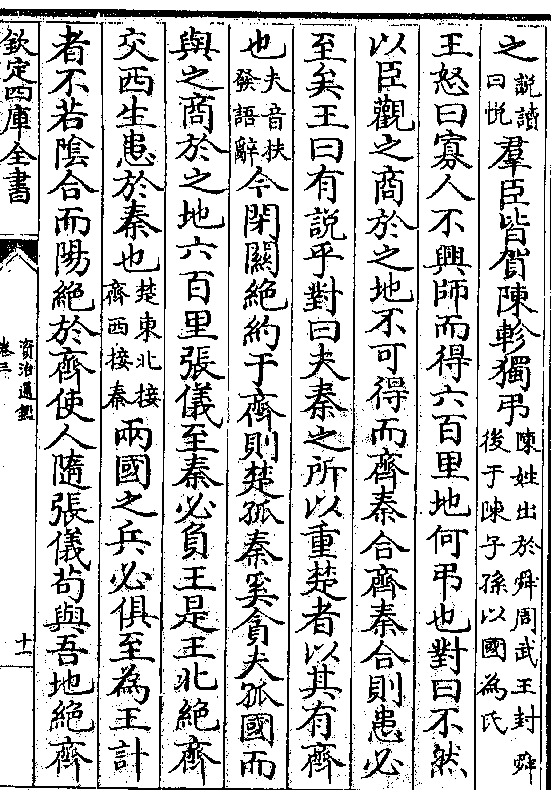 之說讀曰悦羣臣皆賀陳軫獨弔陳姓出於舜周武王封舜後于陳子孫以國為氏
王怒曰寡人不興師而得六百里地何弔也對曰不然
以臣觀之商於之地不可得而齊秦合齊秦合則患必
至矣王曰有説乎對曰夫秦之所以重楚者以其有齊
也夫音扶發語辭今閉關絶約于齊則楚孤秦奚貪夫孤國而
與之商於之地六百里張儀至秦必負王是王北絶齊
交西生患於秦也楚東北接齊西接秦兩國之兵必俱至為王計
者不若陰合而陽絶於齊使人隨張儀茍與吾地絶齊
欽定四庫全書
資治通鑑
卷三
十一